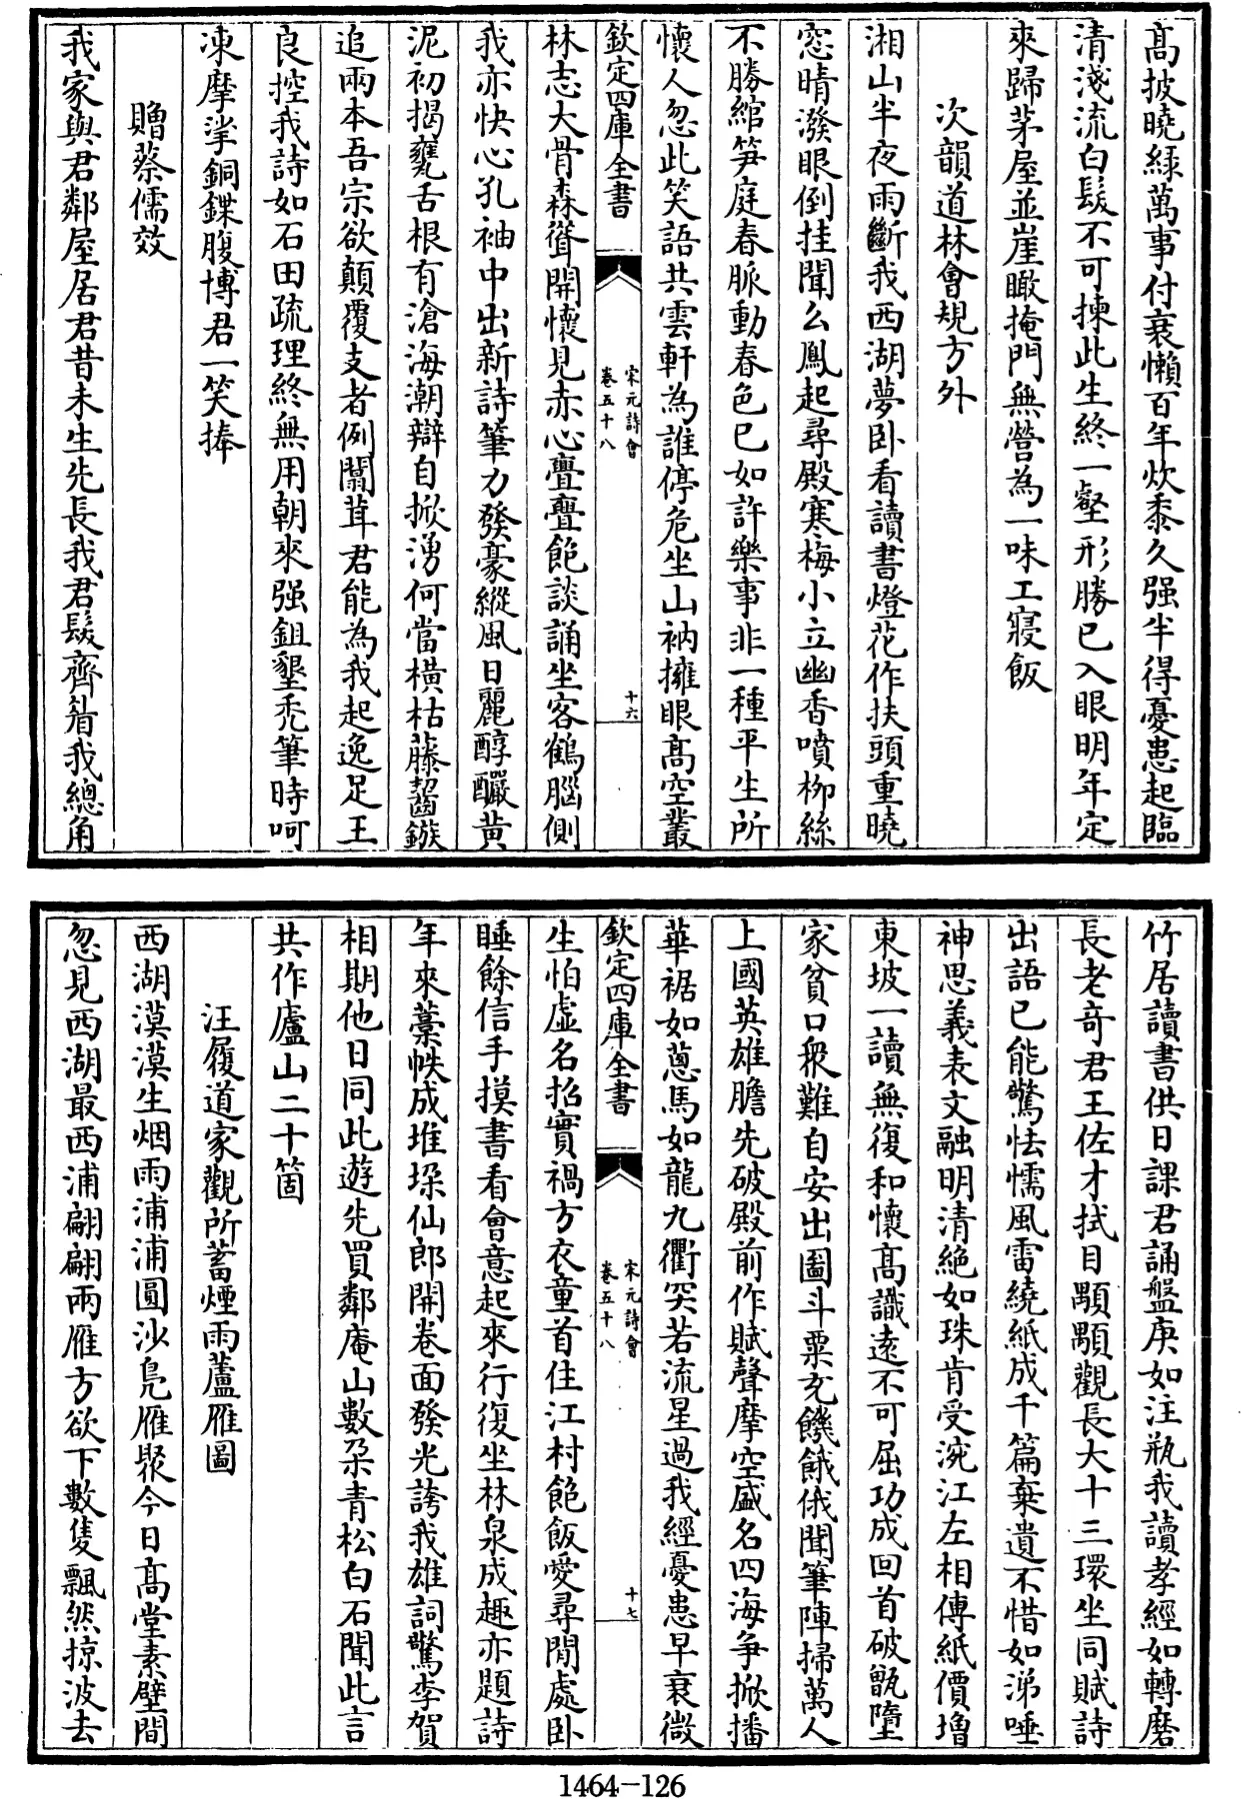 髙披曉緑萬事付衰懶百年炊黍久强半得憂患起臨
清淺流白髮不可揀此生終一壑形勝已入眼明年定
來歸茅屋並崖瞰掩門無營為一味工寢飯
次韻道林㑹規方外
湘山半夜雨斷我西湖夢卧看讀書燈花作扶頭重曉
窓晴潑眼倒挂聞么鳳起尋殿寒梅小立幽香噴栁絲
不勝綰笋庭春脈動春色已如許樂事非一種平生所
懐人忽此笑語共雲軒為誰停危坐山衲擁眼髙空叢
欽定四庫全書
宋元詩㑹
卷五十八
十六
林志大骨森聳開懐見赤心亹亹飽談誦坐客鶴腦側
我亦快心孔袖中出新詩筆力發豪縱風日麗醇釅黄
泥初揭甕舌根有滄海潮辯自掀湧何當横枯藤齧鏃
追兩本吾宗欲顛覆支者例闒茸君能為我起逸足王
良控我詩如石田疏理終無用朝來强鉏墾秃筆時呵
凍摩挲銅鍱腹博君一笑捧
贈蔡儒效
我家與君鄰屋居君昔未生先長我君髮齊眉我總角
竹居讀書供日課君誦盤庚如注瓶我讀孝經如轉磨
長老竒君王佐才拭目顒顒觀長大十三環坐同賦詩
出語已能驚怯懦風雷繞紙成千篇棄遺不惜如涕唾
神思義表文融明清絶如珠肯受涴江左相傳紙價増
東坡一讀無復和懐髙識逺不可屈功成回首破甑墮
家貧口衆難自安出圖斗粟充饑餓俄聞筆陣掃萬人
上國英雄膽先破殿前作賦聲摩空盛名四海争掀播
華裾如蔥馬如龍九衢突若流星過我經憂患早衰微
欽定四庫全書
宋元詩㑹
卷五十八
十七
生怕虚名招實禍方衣童首住江村飽飯愛尋閒處卧
睡餘信手摸書看㑹意起來行復坐林泉成趣亦題詩
年來藁帙成堆垛仙郎開卷面發光誇我雄詞驚李賀
相期他日同此遊先買鄰庵山數朶青松白石聞此言
共作廬山二十箇
汪履道家觀所蓄煙雨蘆雁圖
西湖漠漠生烟雨浦浦圓沙鳬雁聚今日髙堂素壁間
忽見西湖最西浦翩翩兩雁方欲下數隻飄然掠波去
1464-126